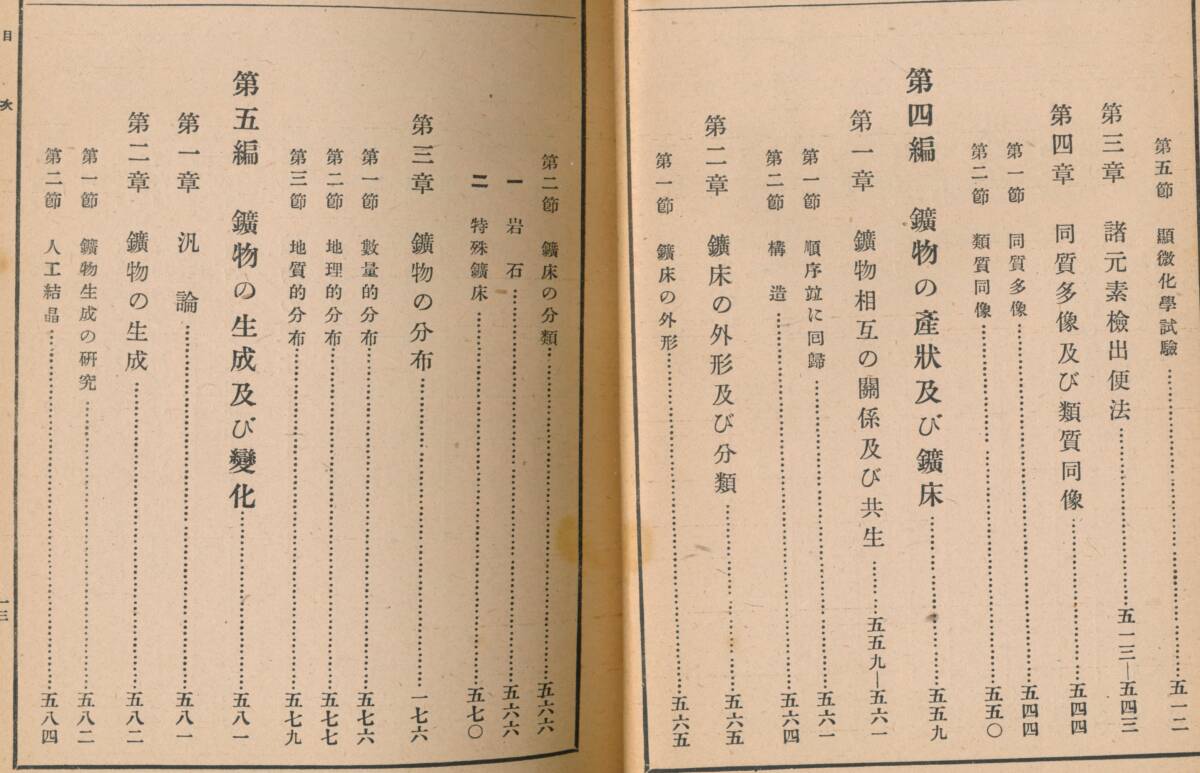 第五節 顯微化學試驗………五一二
第三章 諸元素檢出便法………五一三—五四三
第四章 同質多像及び類質同像………五四四
第一節 同質多像………五四四
第二節 類質同像………五五〇
第四編 鑛物の產狀及び鑛床………五五九
第一章 鑛物相互の關係及び共生………五五九—五六一
第一節 順序竝に囘歸………五六一
第二節 構造………五六四
第二章 鑛床の外形及び分類………五六五
第一節 鑛床の外形………五六五
第二節 鑛床の分類………五六六
一 岩石………五六六
二 特殊鑛床………五七〇
第三章 鑛物の分布………一七六
第一節 數量的分布………五七六
第二節 地理的分布………五七七
第三節 地質的分布………五七九
第五編 鑛物の生成及び變化………五八一
第一章 汎論………五八一
第二章 鑛物の生成………五八二
第一節 鑛物生成の硏究………五八二
第二節 人工結晶………五八四
目次
一三